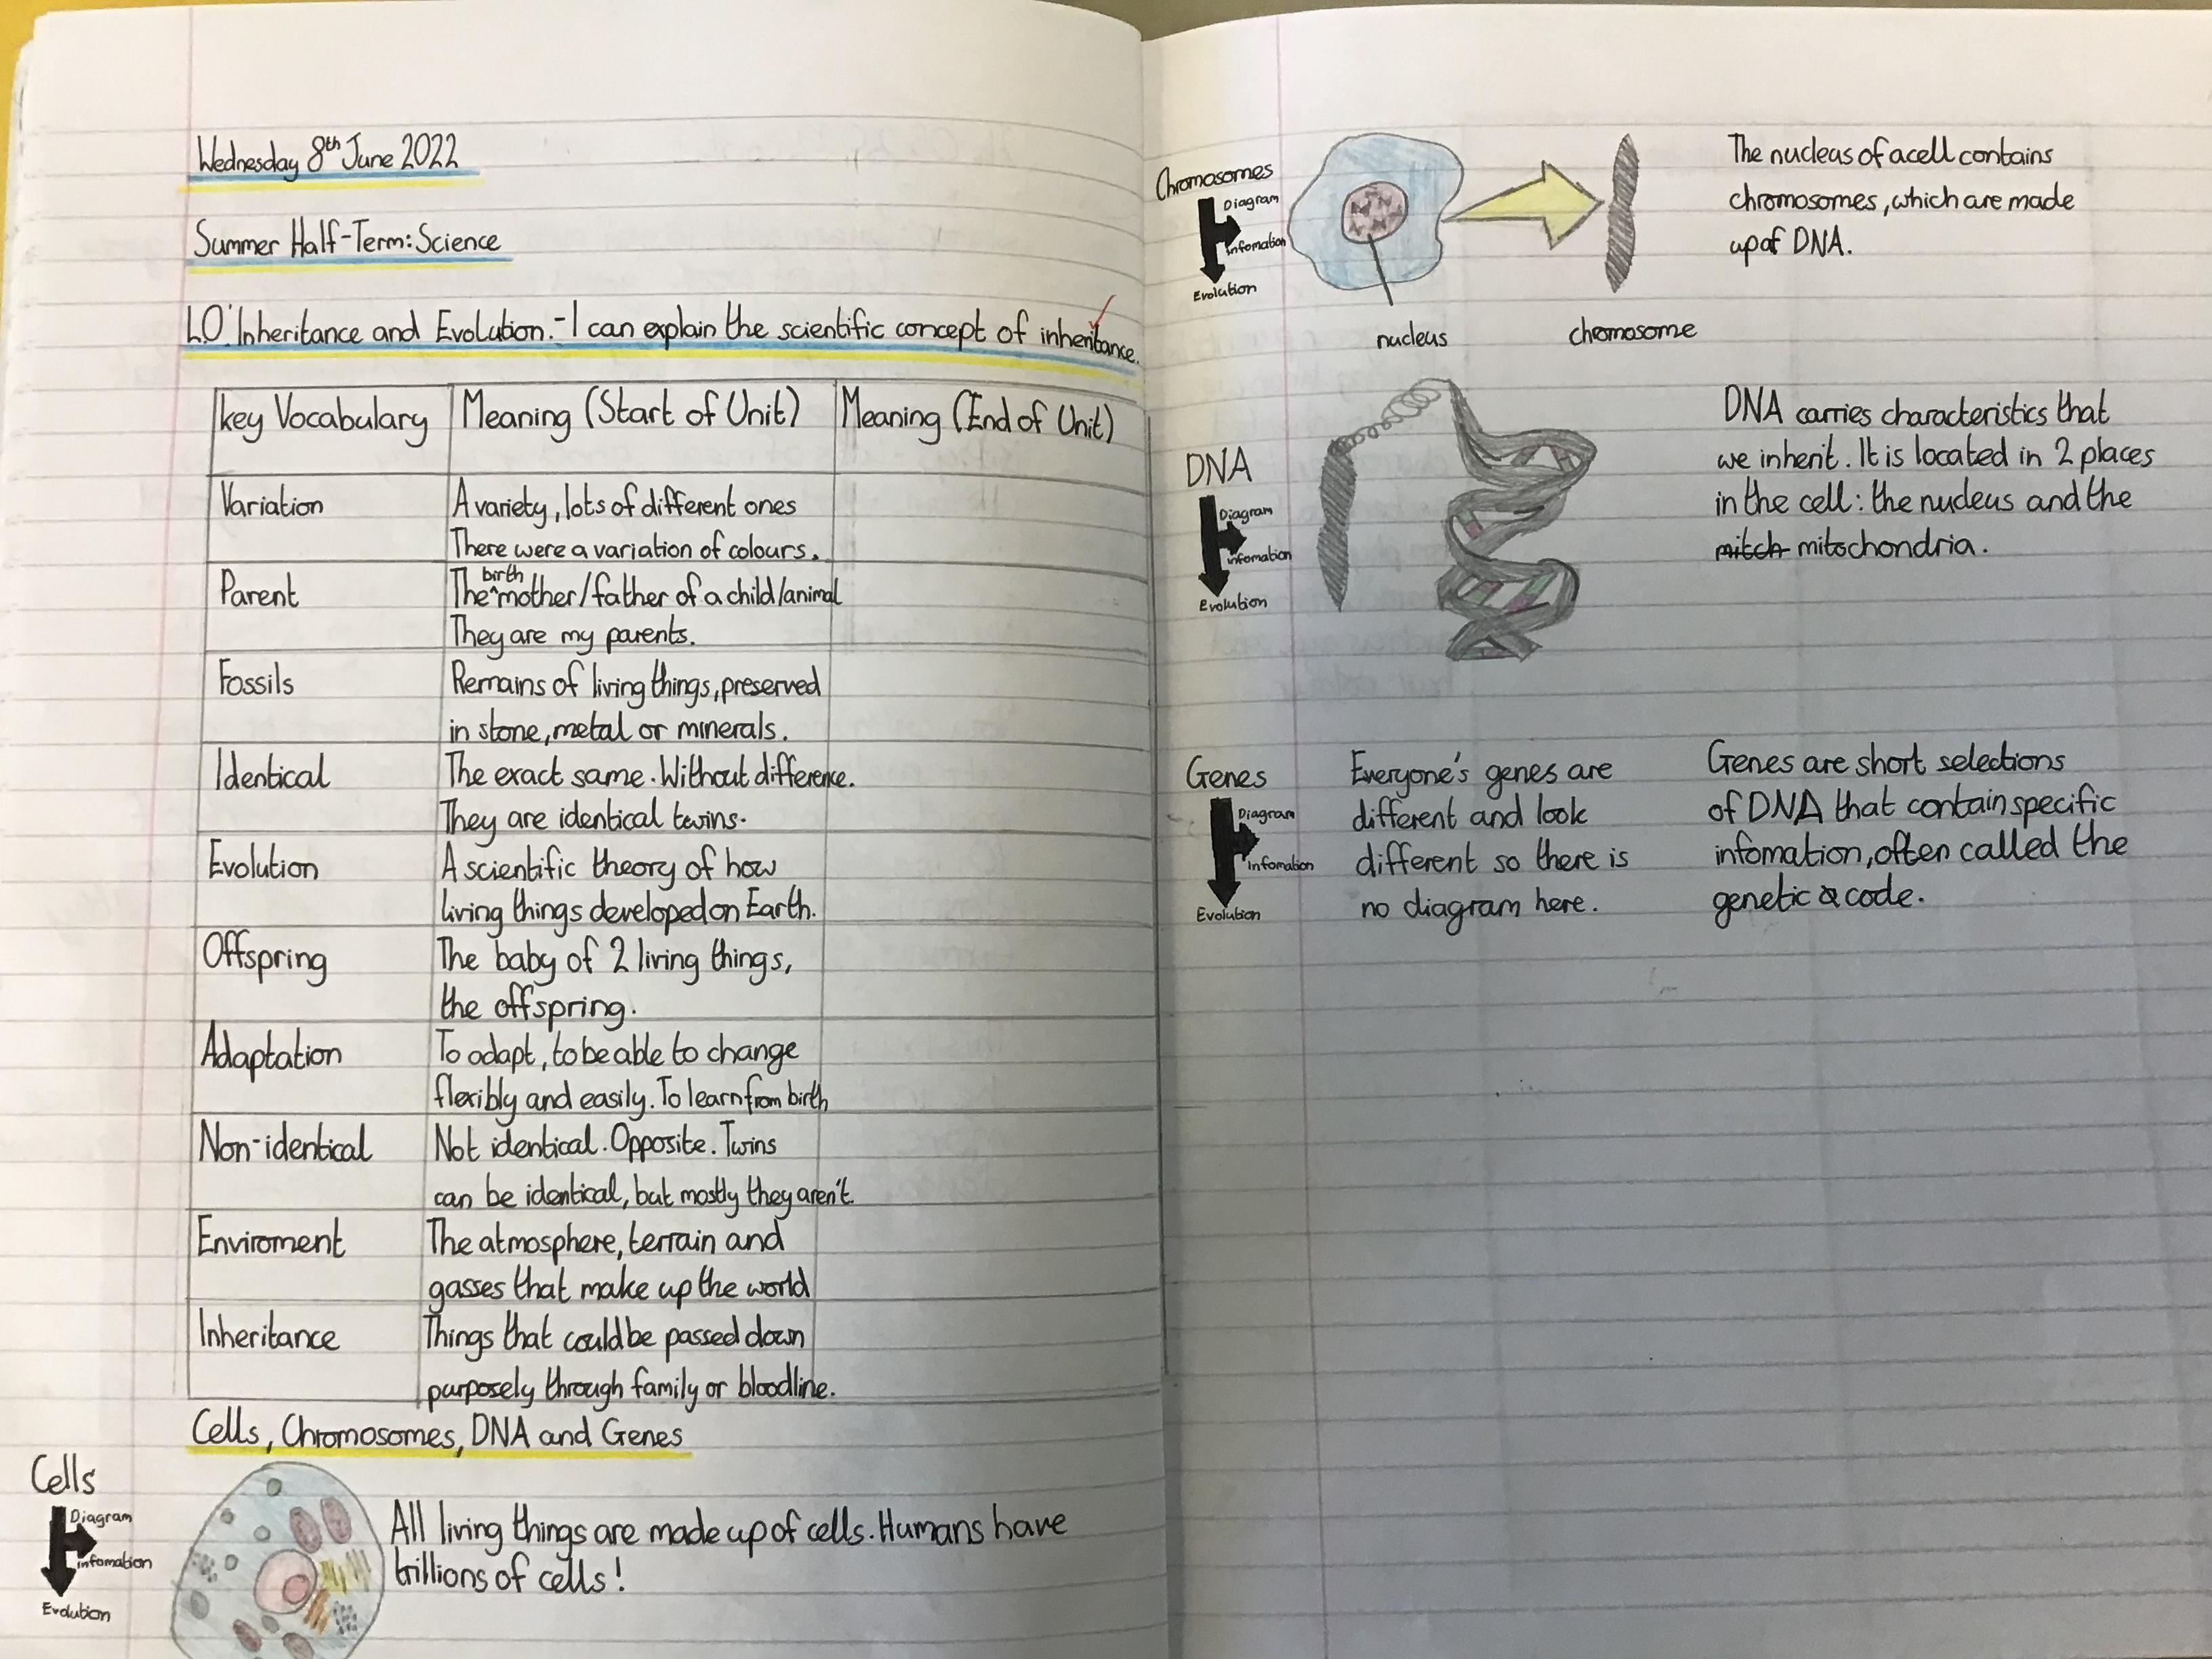 Wednesday 8th June 2022
Summer Half-Term: Science
LO: Inheritance and Evolution. - I can explain the scientific concept of inheritance.
key Vocabulary | Meaning (Start of Unit) | Meaning (End of Unit)
Variation | A variety, lots of different ones
There were a variation of colours.
Parent | The ^birth mother/father of a child/animal
They are my parents.
Fossils | Remains of living things, preserved
in stone, metal or minerals.
Identical | The exact same. Without difference.
They are identical twins.
Evolution | A scientific theory of how
living things developed on Earth.
Offspring | The baby of 2 living things,
the offspring.
Adaptation | To adapt, to be able to change
flexibly and easily. To learn from birth
Non-identical | Not identical. Opposite. Twins
can be identical, but mostly they aren't.
Enviroment | The atmosphere, terrain and
gasses that make up the world
Inheritance | Things that could be passed down
purposely through family or bloodline.
Cells, Chromosomes, DNA and Genes
Cells
Diagram
infomation
Evolution
All living things are made up of cells. Humans have
trillions of cells!
Chromosomes
Diagram
Infomation
Evolution
nucleus
chromosome
The nucleus of a cell contains
chromosomes, which are made
up of DNA.
DNA
Diagram
infomation
Evolution
DNA carries characteristics that
we inherit. It is located in 2 places
in the cell: the nucleus and the
mitch mitochondria.
Genes
Diagram
Infomation
Evolution
Everyone's genes are
different and look
different so there is
no diagram here.
Genes are short selections
of DNA that contain specific
infomation, often called the
genetic code.